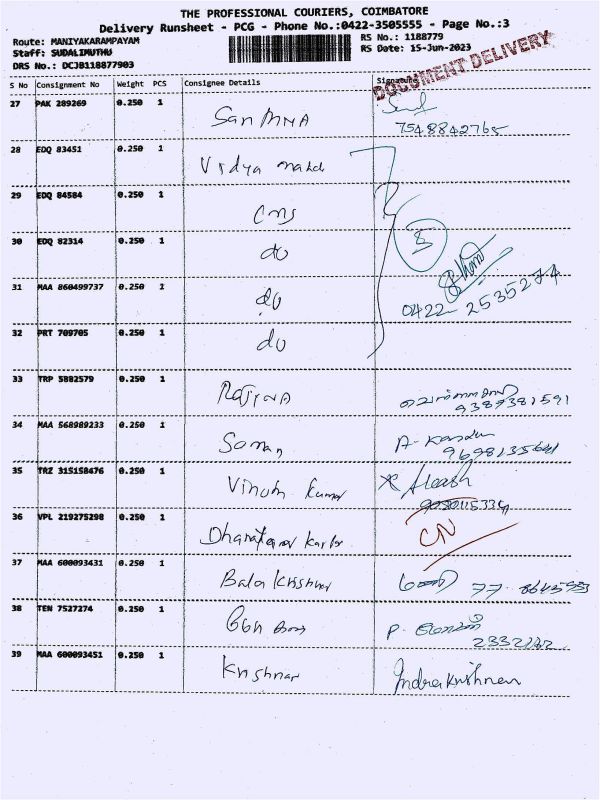 THE PROFESSIONAL COURIERS, COIMBATORE
Delivery Runsheet - PCG - Phone No.:0422-3505555 - Page No.:3
Route: MANIYAKARAMPAYAM
RS No.: 1188779
Staff: SUDALIMUTHU
RS Date: 15-Jun-2023
DRS No.: DCJB118877903
DOCUMENT DELIVERY
S No Consignment No Weight PCS Consignee Details Signature
27 PAK 289269 0.250 1
7548842765
28 EDQ 83451 0.250 1 Vidya
29 EDQ 84584 0.250 1 CMS
5
30 EDQ 82314 0.250 1 do
31 MAA 860499737 0.250 1 do
0422 2535274
32 PRT 709705 0.250 1 do
33 TRP 5882579 0.250 1
9389381591
34 MAA 568989233 0.250 1 Soman
35 TRZ 315158476 0.250 1 Vinoth Kumar Akash
36 VPL 219275298 0.250 1 CN
37 MAA 600093431 0.250 1 Bala Krishnan
38 TEN 7527274 0.250 1 P.
39 MAA 600093451 0.250 1 Krishnan Indrakrishnan